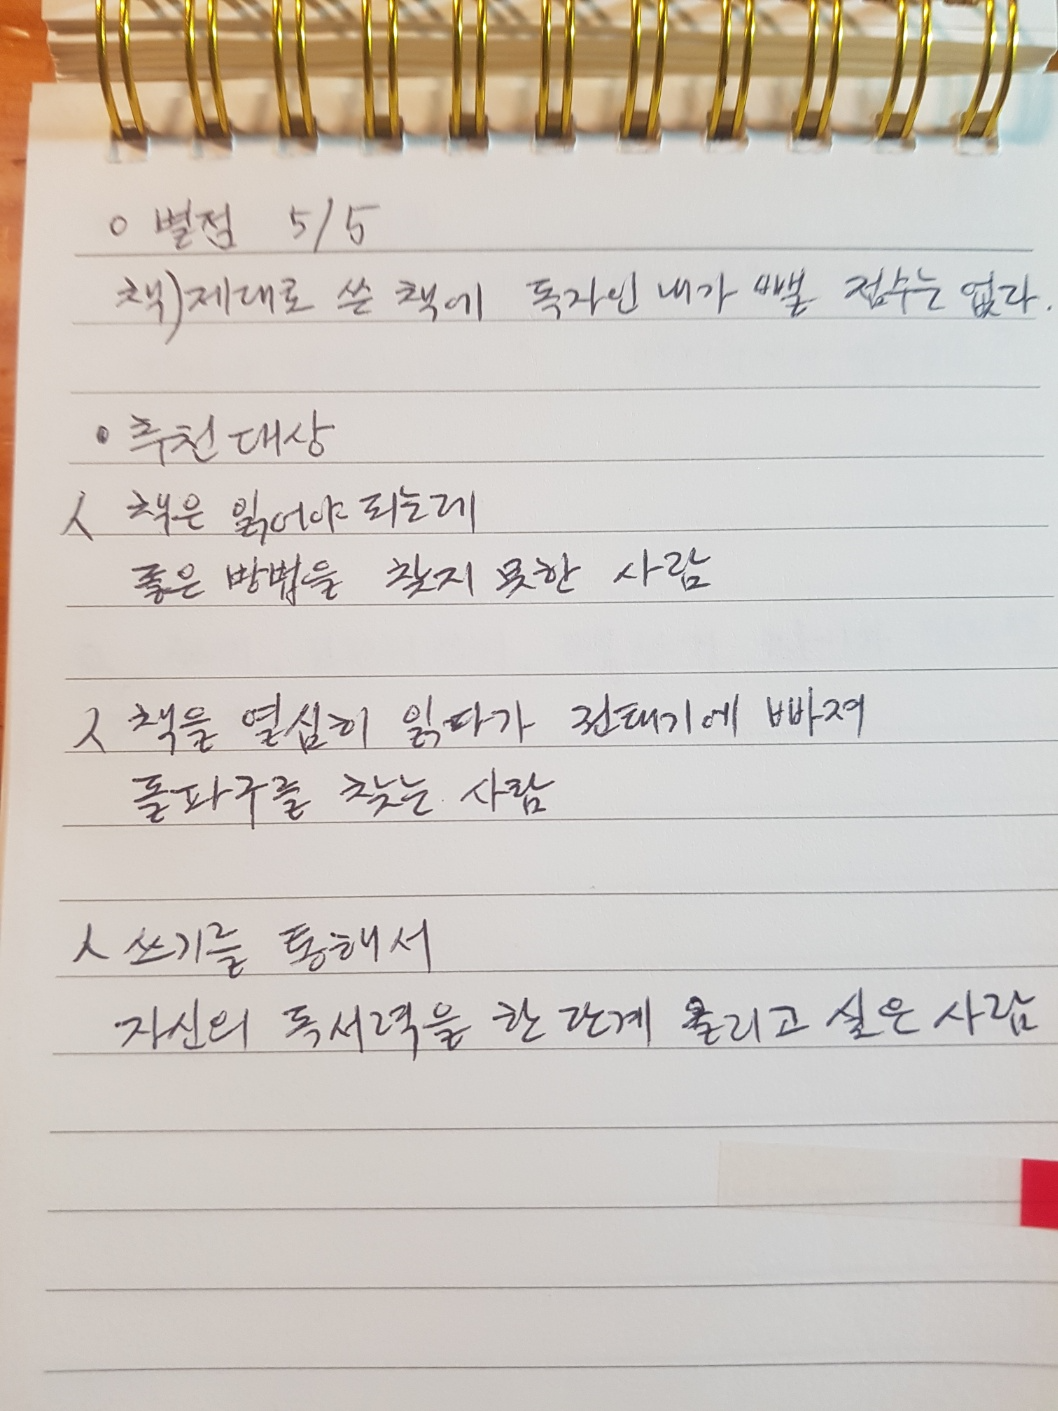 ○ 별점 5/5
책)제대로 쓴 책에 독자인 내가 뺄 점수는 없다.
• 추천대상
人 책은 읽어야 되는데
좋은 방법을 찾지 못한 사람
人 책을 열심히 읽다가 권태기에 빠져
돌파구를 찾는 사람
人 쓰기를 통해서
자신의 독서력을 한 단계 올리고 싶은 사람